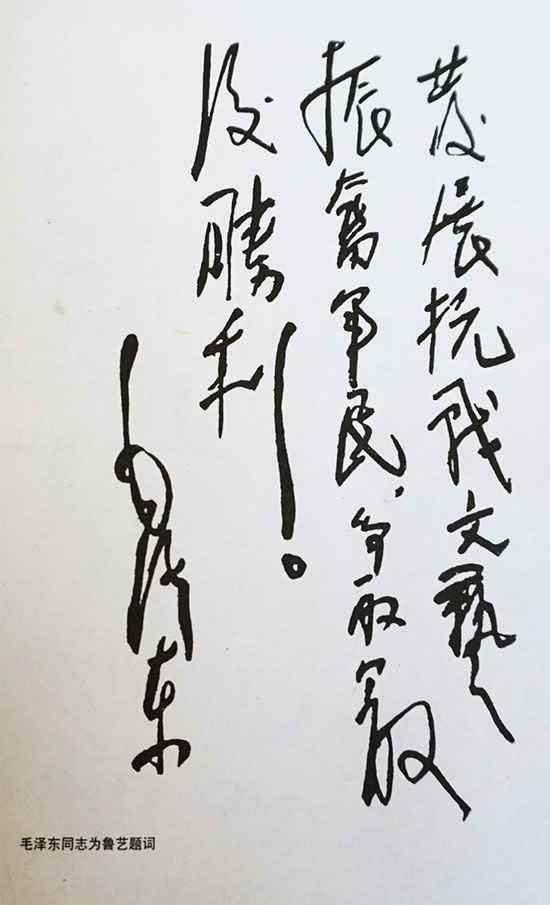 发展抗战文艺
振奋军民，争取最
后胜利！
毛泽东
毛泽东同志为鲁艺题词